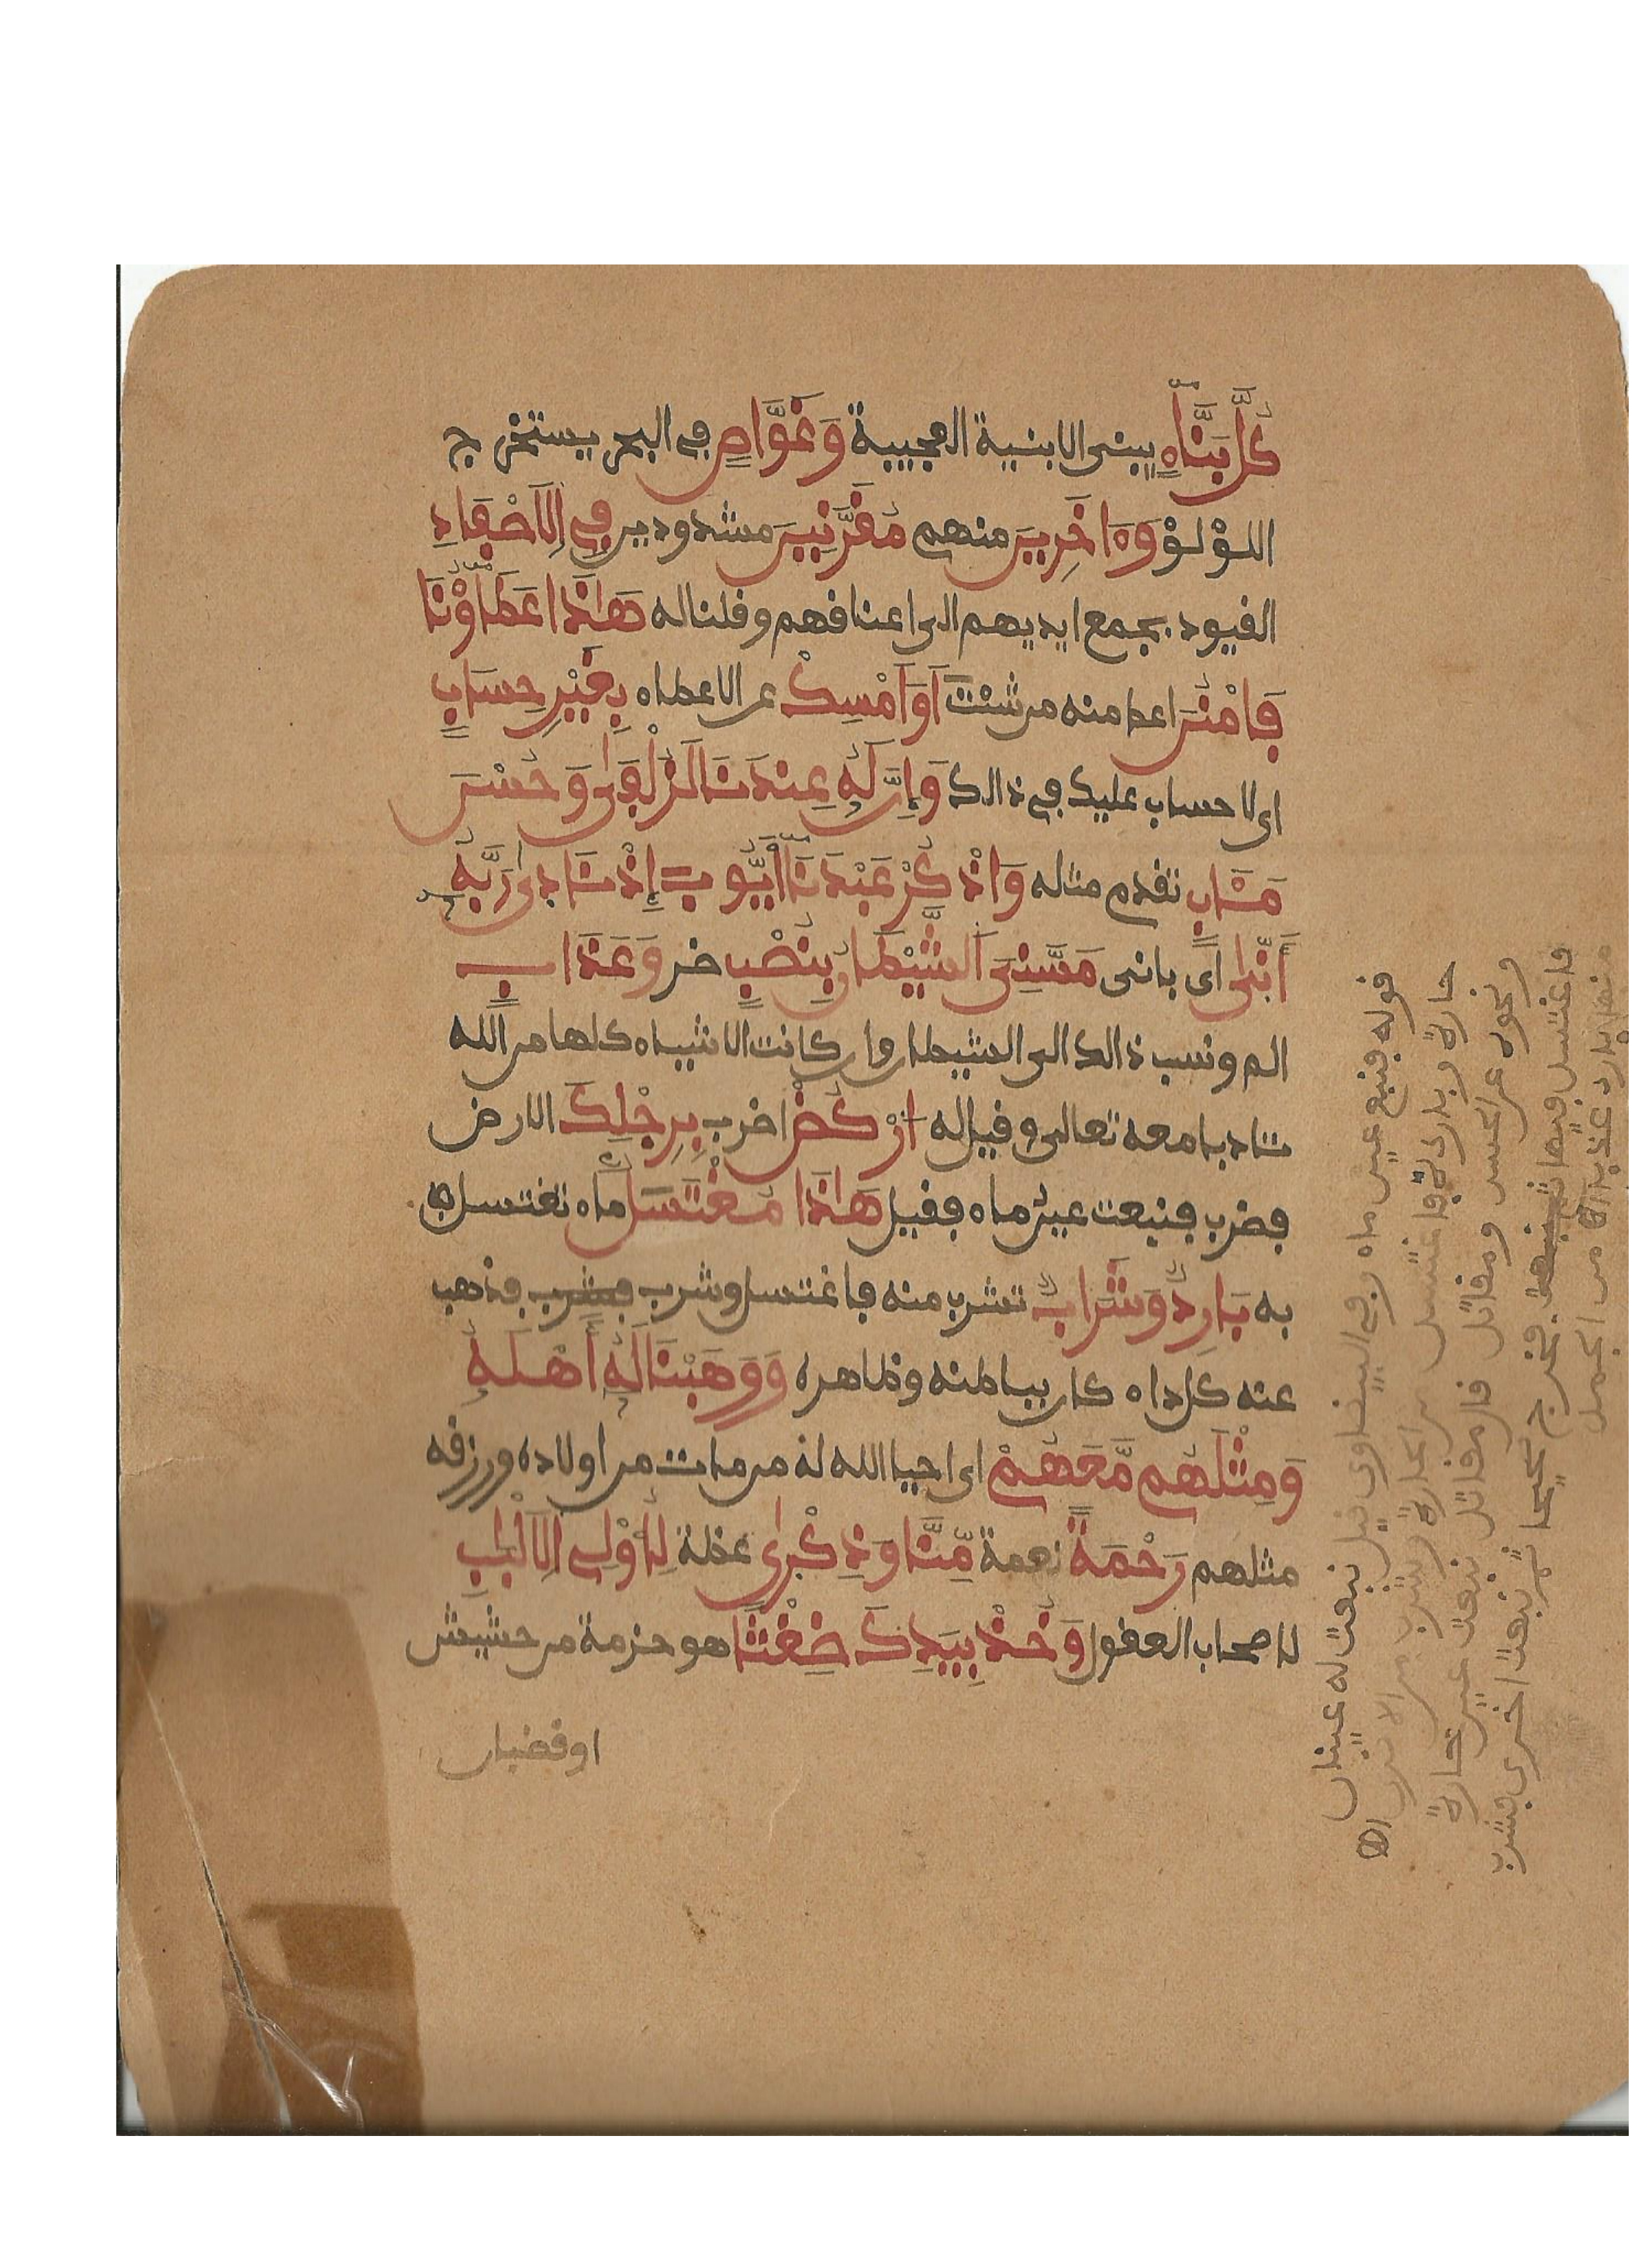 كُلَّ بَنَّاءٍ يبنى الابنية العجيبة وَغَوَّاصٍ في البحر يستخرج
اللؤلؤ وَءَاخَرِينَ منهم مُقَرَّنِينَ مشدودين فِي اِلَاصْفَادِ
القيود بجمع ايديهم الى اعناقهم وقلنا له هَٰذَا عَطَاؤُنَا
فَامْنُنَ اعط منه من شئت اَوَ اَمْسِكْ عن الاعطاء بِغَيْرِ حِسَابٍ
اى لا حساب عليك في ذالك وَإِنَّ لَهُ عِندَنَا لَزُلْفَىٰ وَحُسْنَ
مَـَٔابٍ تقدم مثله وَاذْكُرْ عَبْدَنَا أَيُّوبَ إِذْ نَادَىٰ رَبَّهُ
أَنِّى اى بانى مَسَّنِىَ اَلشَّيْطَٰنُ بِنُصْبٍ ضر وَعَذَابٍ
الم ونسب ذالك الى الشيطان وان كانت الاشياء كلها من الله
تادبا معه تعالى وقيل له اُرْكُضْ اضرب بِرِجْلِكَ الارض
فضرب فنبعت عين ماء فقيل هَٰذَا مُغْتَسَلُ ماء تغتسل
به بَارِدٌ وَشَرَابٌ تشرب منه فاغتسل وشرب فشرب فذهب
عنه كل داء كان بباطنه وظاهره وَوَهَبْنَا لَهُ أَهْلَهُ
وَمِثْلَهُم مَّعَهُمْ اى احيا الله له من مات من اولاده ورزقه
مثلهم رَحْمَةً نعمة مِّنَّا وَذِكْرَىٰ عظة لِأُوْلِى اِلَالْبَٰبِ
لاصحاب العقول وَخُذْ بِيَدِكَ ضِغْثًا هو حزمة من حشيش
او قضبان
قوله فنبع عين ماء وفي البيضاوى قيل نبعت له عينان
حارة وباردة فاغتسل من الحارة وشرب من الاخرى اه
ونحوه عن الحسن ومقاتل قال مقاتل نبعت عين حارة
فاغتسل فيها فخرج صحيحا ثم نبعت اخرى فشرب
منها بارد عذبا اه من الجمل